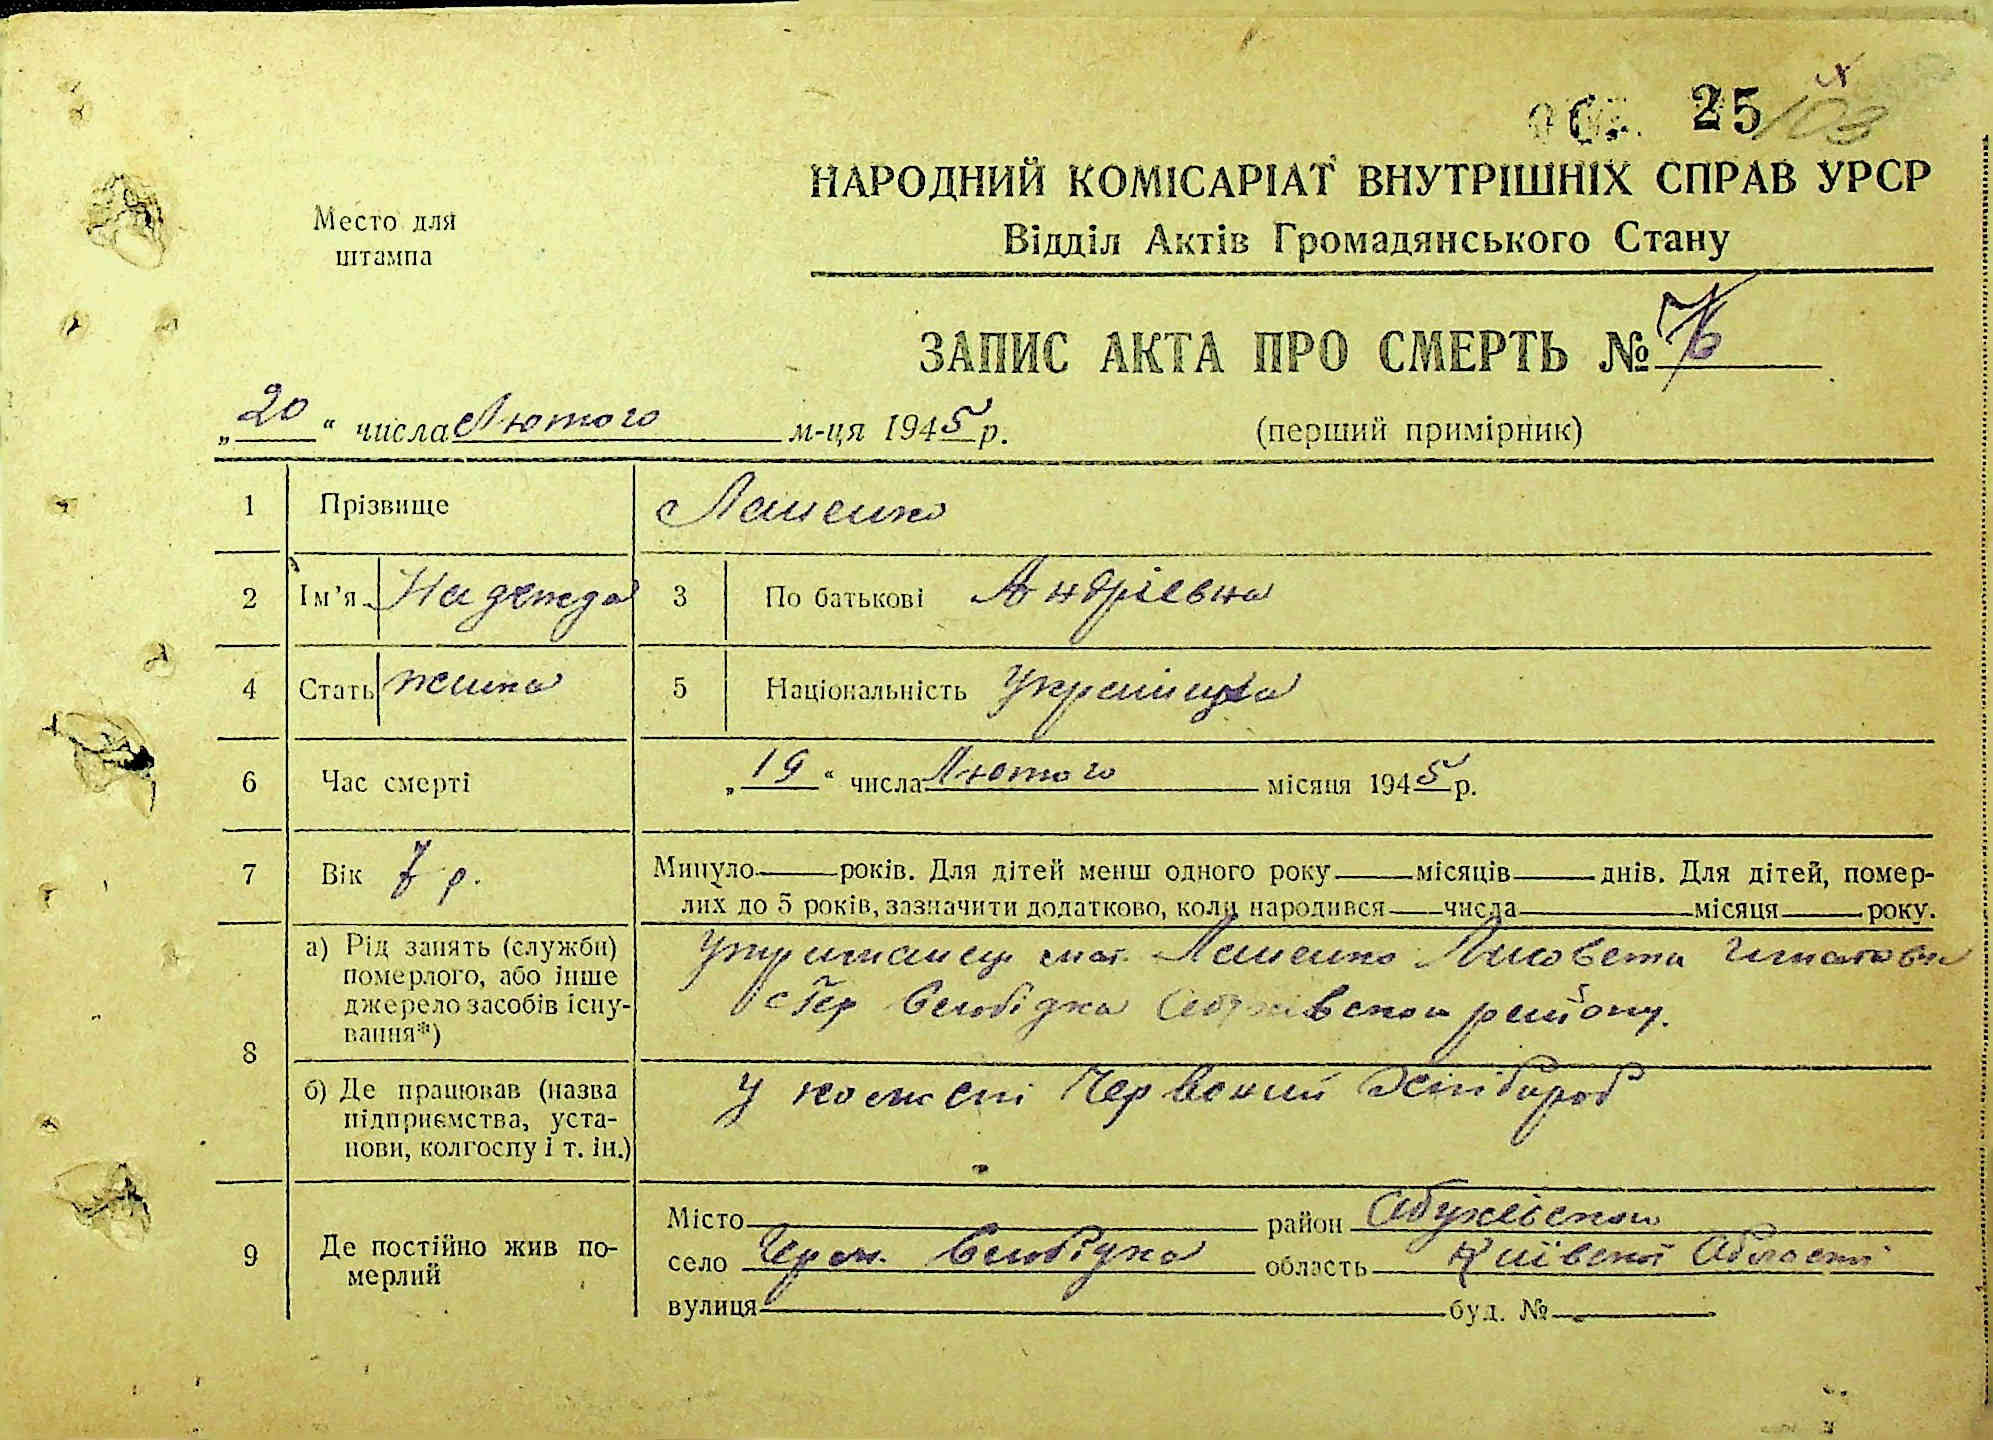 25
103
НАРОДНИЙ КОМІСАРІАТ ВНУТРІШНІХ СПРАВ УРСР
Місто для
штампа
Відділ Актів Громадянського Стану
ЗАПИС АКТА ПРО СМЕРТЬ №
„20“ числа Лютого м-ця 1945 р. (перший примірник)
1 Прізвище
2 Ім'я Надежда 3 По батькові Андріевна
4 Стать 5 Національність Украінка
6 Час смерті „19“ числа Лютого місяця 1945 р.
7 Вік р. Минуло років. Для дітей менш одного року місяців днів. Для дітей, помер-
лих до 5 років, зазначити додатково, коли народився числа місяця року.
8 а) Рід занять (служби)
померлого, або інше
джерело засобів існу-
вання*)
Утриманец мат.
Слобідка району.
б) Де працював (назва
підприємства, уста-
нови, колгоспу і т. ін.)
у Червоний Хлібороб
9 Де постійно жив по-
мерлий
Місто район Обухівского
село Слобідка область Київскої Області
вулиця буд. №